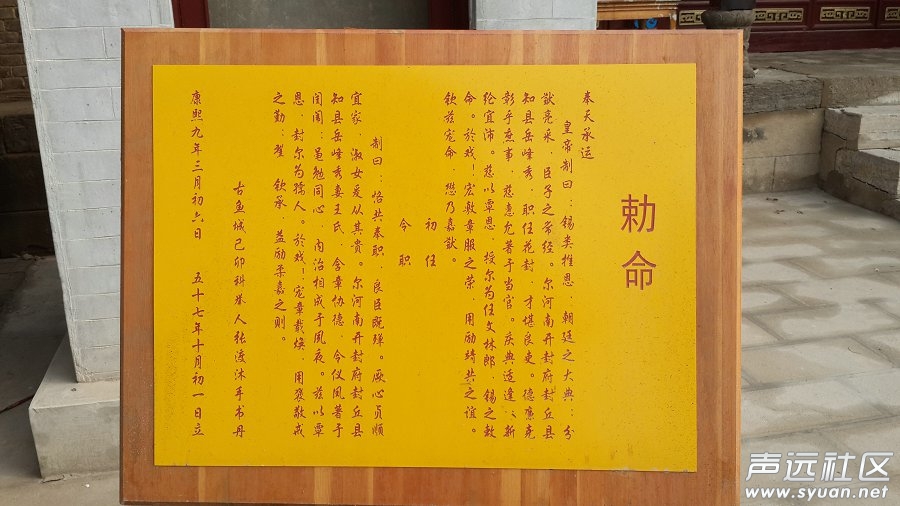 勅命
奉天承运
皇帝制曰：锡类推恩、朝廷之大典；分
猷亮采、臣子之常经。尔河南开封府封丘县
知县岳峰秀、职任花封、才堪良吏。德廉克
彰乎庶事、慈惠允著于当官。庆典适逢、新
纶宜沛。兹以覃恩、授尔为任文林郎、锡之敕
命。於戏！宏敷章服之荣、用励靖共之谊。
钦兹宠命、懋乃嘉猷。
初任
今职
制曰：恪共奉职、良臣既殚。厥心贞顺
宜家、淑女爰从其贵。尔河南开封府封丘县
知县岳峰秀妻王氏、含章协德、令仪夙著于
闺闱；黾勉同心、内治相成于夙夜。兹以覃
恩、封尔为孺人。於戏！宠章载焕、用褒敬戒
之勤；翟 钦承 益励柔嘉之则。
古鱼城己卯科举人张浚沐手书丹
康熙九年三月初六日 五十七年十月初一日立
声远社区
www.syuan.net